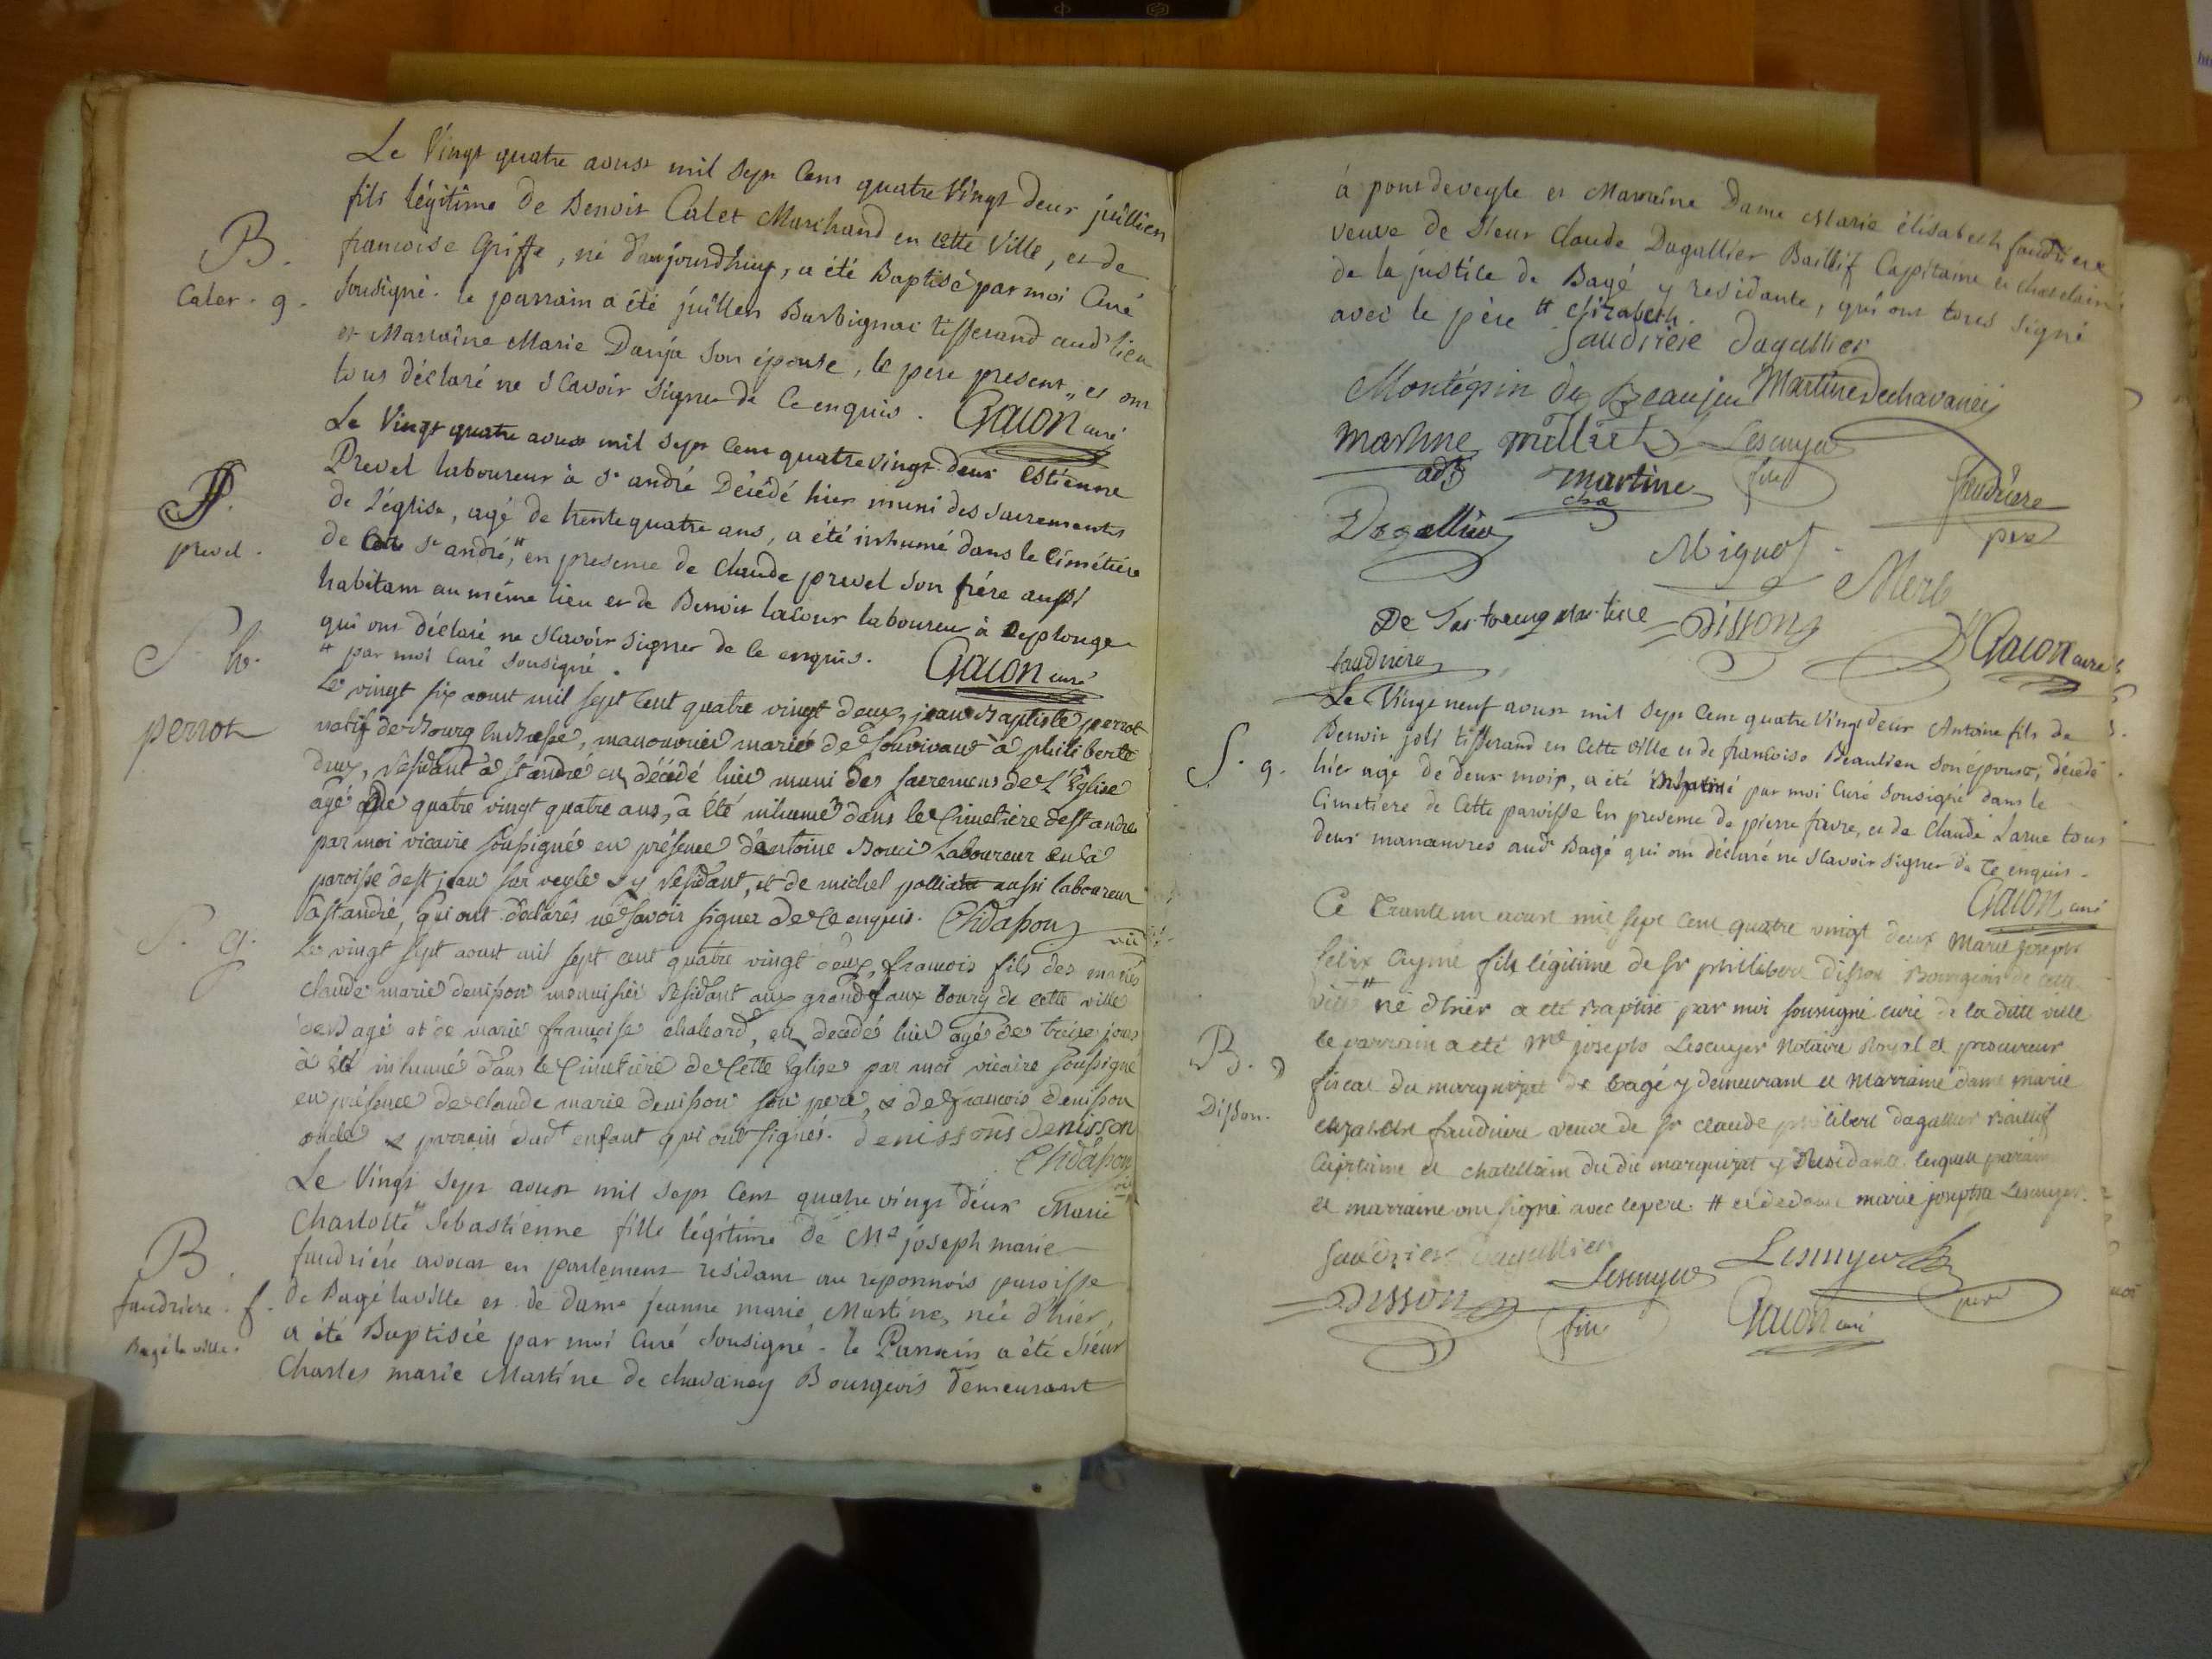 Le Vingt quatre aoust mil sept cent quatre Vingt deux juillien
fils légitime de Benoit Calet Marchand en cette Ville, et de
B.
francoise Griffe, né d'aujourdhuy, a été Baptisé par moi Curé
Calet. g.
sousigné. le parrain a été juillien Barbignac tisserand aud lieu
et Marraine Marie Danja son épouse, le pere present, et ont
tous déclaré ne sçavoir signer de ce enquis. Gacon curé
Le Vingt quatre aoust mil sept cent quatre vingt deux Estienne
Prevel laboureur à st andré Décédé hier muni des sacrements
S.
de l'église, agé de trente quatre ans, a été inhumé dans le Cimétiére
prevel.
de st andré, # en presence de Claude prevel son frére aussi
habitant au même lieu et de Benoit lacour laboureur à Replonge
qui ont déclaré ne sçavoir signer de ce enquis. Gacon curé
# par moi Curé sousigné.
S. h.
Le vingt six aoust mil sept cent quatre vingt deux, jean Baptiste perrot
perrot
natif de Bourg en Bresse, manouvrier marié de à philiberte
, residant à st andré est décédé hier muni des sacremens de l'Eglise
agé de quatre vingt quatre ans, a été inhumé dans le Cimetiere de st andré
par moi vicaire soussigné en présence d'antoine Laboureur en la
paroisse de st jean sur veyle y residant, et de michel aussi laboureur
a st andré, qui ont déclarés ne savoir signer de ce enquis. Chidasson vic
S. g.
Le vingt sept aoust mil sept cent quatre vingt deux, francois fils des mariés
claude marie denisson menuisier residant aux grand faux bourg de cette ville
de Bagé et de marie françoise , est decedé hier agé de treize jours
à été inhumé dans le Cimetiere de cette Eglise par moi vicaire soussigné
en présence de claude marie denisson son pere, & de francois denisson
oncle & parrain dudt enfant qui ont signés. denissons Denisson
Chidasson vic
Le Vingt sept aoust mil sept cent quatre vingt deux Marie
Charlotte # Sebastienne fille légitime de Me joseph marie
B.
faudriére avocat en parlement residant au reponnois paroisse
faudriere. f.
de Bagé la ville et de dame jeanne marie Martine, née d'hier,
Bagé la ville.
a été Baptisée par moi Curé sousigné. le Parrain a été Sieur
Charles marie Martine de chavaney Bourgeois demeurant
à pont de veyle et Marraine Dame Marie élisabeth faudriere
veuve de Sieur Claude Dagallier Baillif Capitaine et chatelain
de la justice de Bagé y residante, qui ont tous signé
avec le pére # élizabeth
faudrieie dagallier
Montépin de Beaujeu Martine dechavaneis
Martine milliet Lescuyer
adt martine fils faudriere
Dagallier pre
Mignot Merle
De martine Disson
faudriere Gacon curé
Le Vingt neuf aoust mil sept cent quatre Vingt deux Antoine fils de
Benoit joli tisserand en cette ville et de francoise Beaulieu son épouse, décédé
S. g.
hier agé de deux mois, a été par moi Curé sousigné dans le
Cimetiere de cette paroisse en presence de pierre favre, et de Claude Larue tous
deux manœuvres aud Bagé qui ont déclaré ne sçavoir signer de ce enquis.
Gacon curé
Ce trante un aoust mil sept cent quatre vingt deux marie joseph
felix aymé fils légitime de Sr philibert disson Bourgeois de cette
ville # né d'hier a eté Baptisé par moi soussigné curé de la ditte ville
B. D
le parrain a eté Me joseph Lescuyer notaire Royal et procureur
fiscal du marquizat de bagé y demeurant et marraine dame marie
Disson.
elizabeth faudriere veuve de Sr claude philibert dagallier Baillif
Capitaine et chatellain du dit marquizat y residante lesquels parain
et marraine ont signé avec le pere. # et de dame marie josephe Lescuyer.
faudrier dagallier
Lescuyer fils Lescuyer pere
Disson Gacon curé